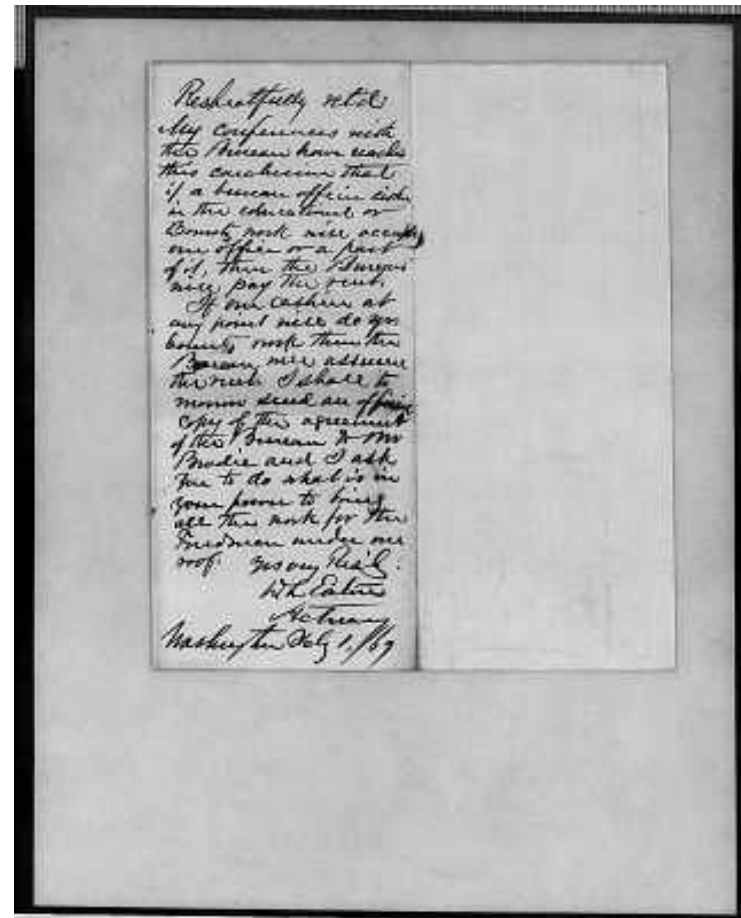 Respectfully retd
My conferences with
the Bureau have reached
this conclusion that
if a bureau officer either
in the educational or
Bounty work will occupy
our office or a part
of it, then the Bureau
will pay the rent.
If our cashier at
any point will do yr
bounty work then the
Bureau will assume
the rent. I shall to
morrow send an official
copy of the agreement
of the Bureau to Mr
Brodie and I ask
you to do what is in
your power to bring
all the work for the
Freedmen under one
roof. Yrs very Resply.
D L Eaton
Actuary
Washington July 1./69